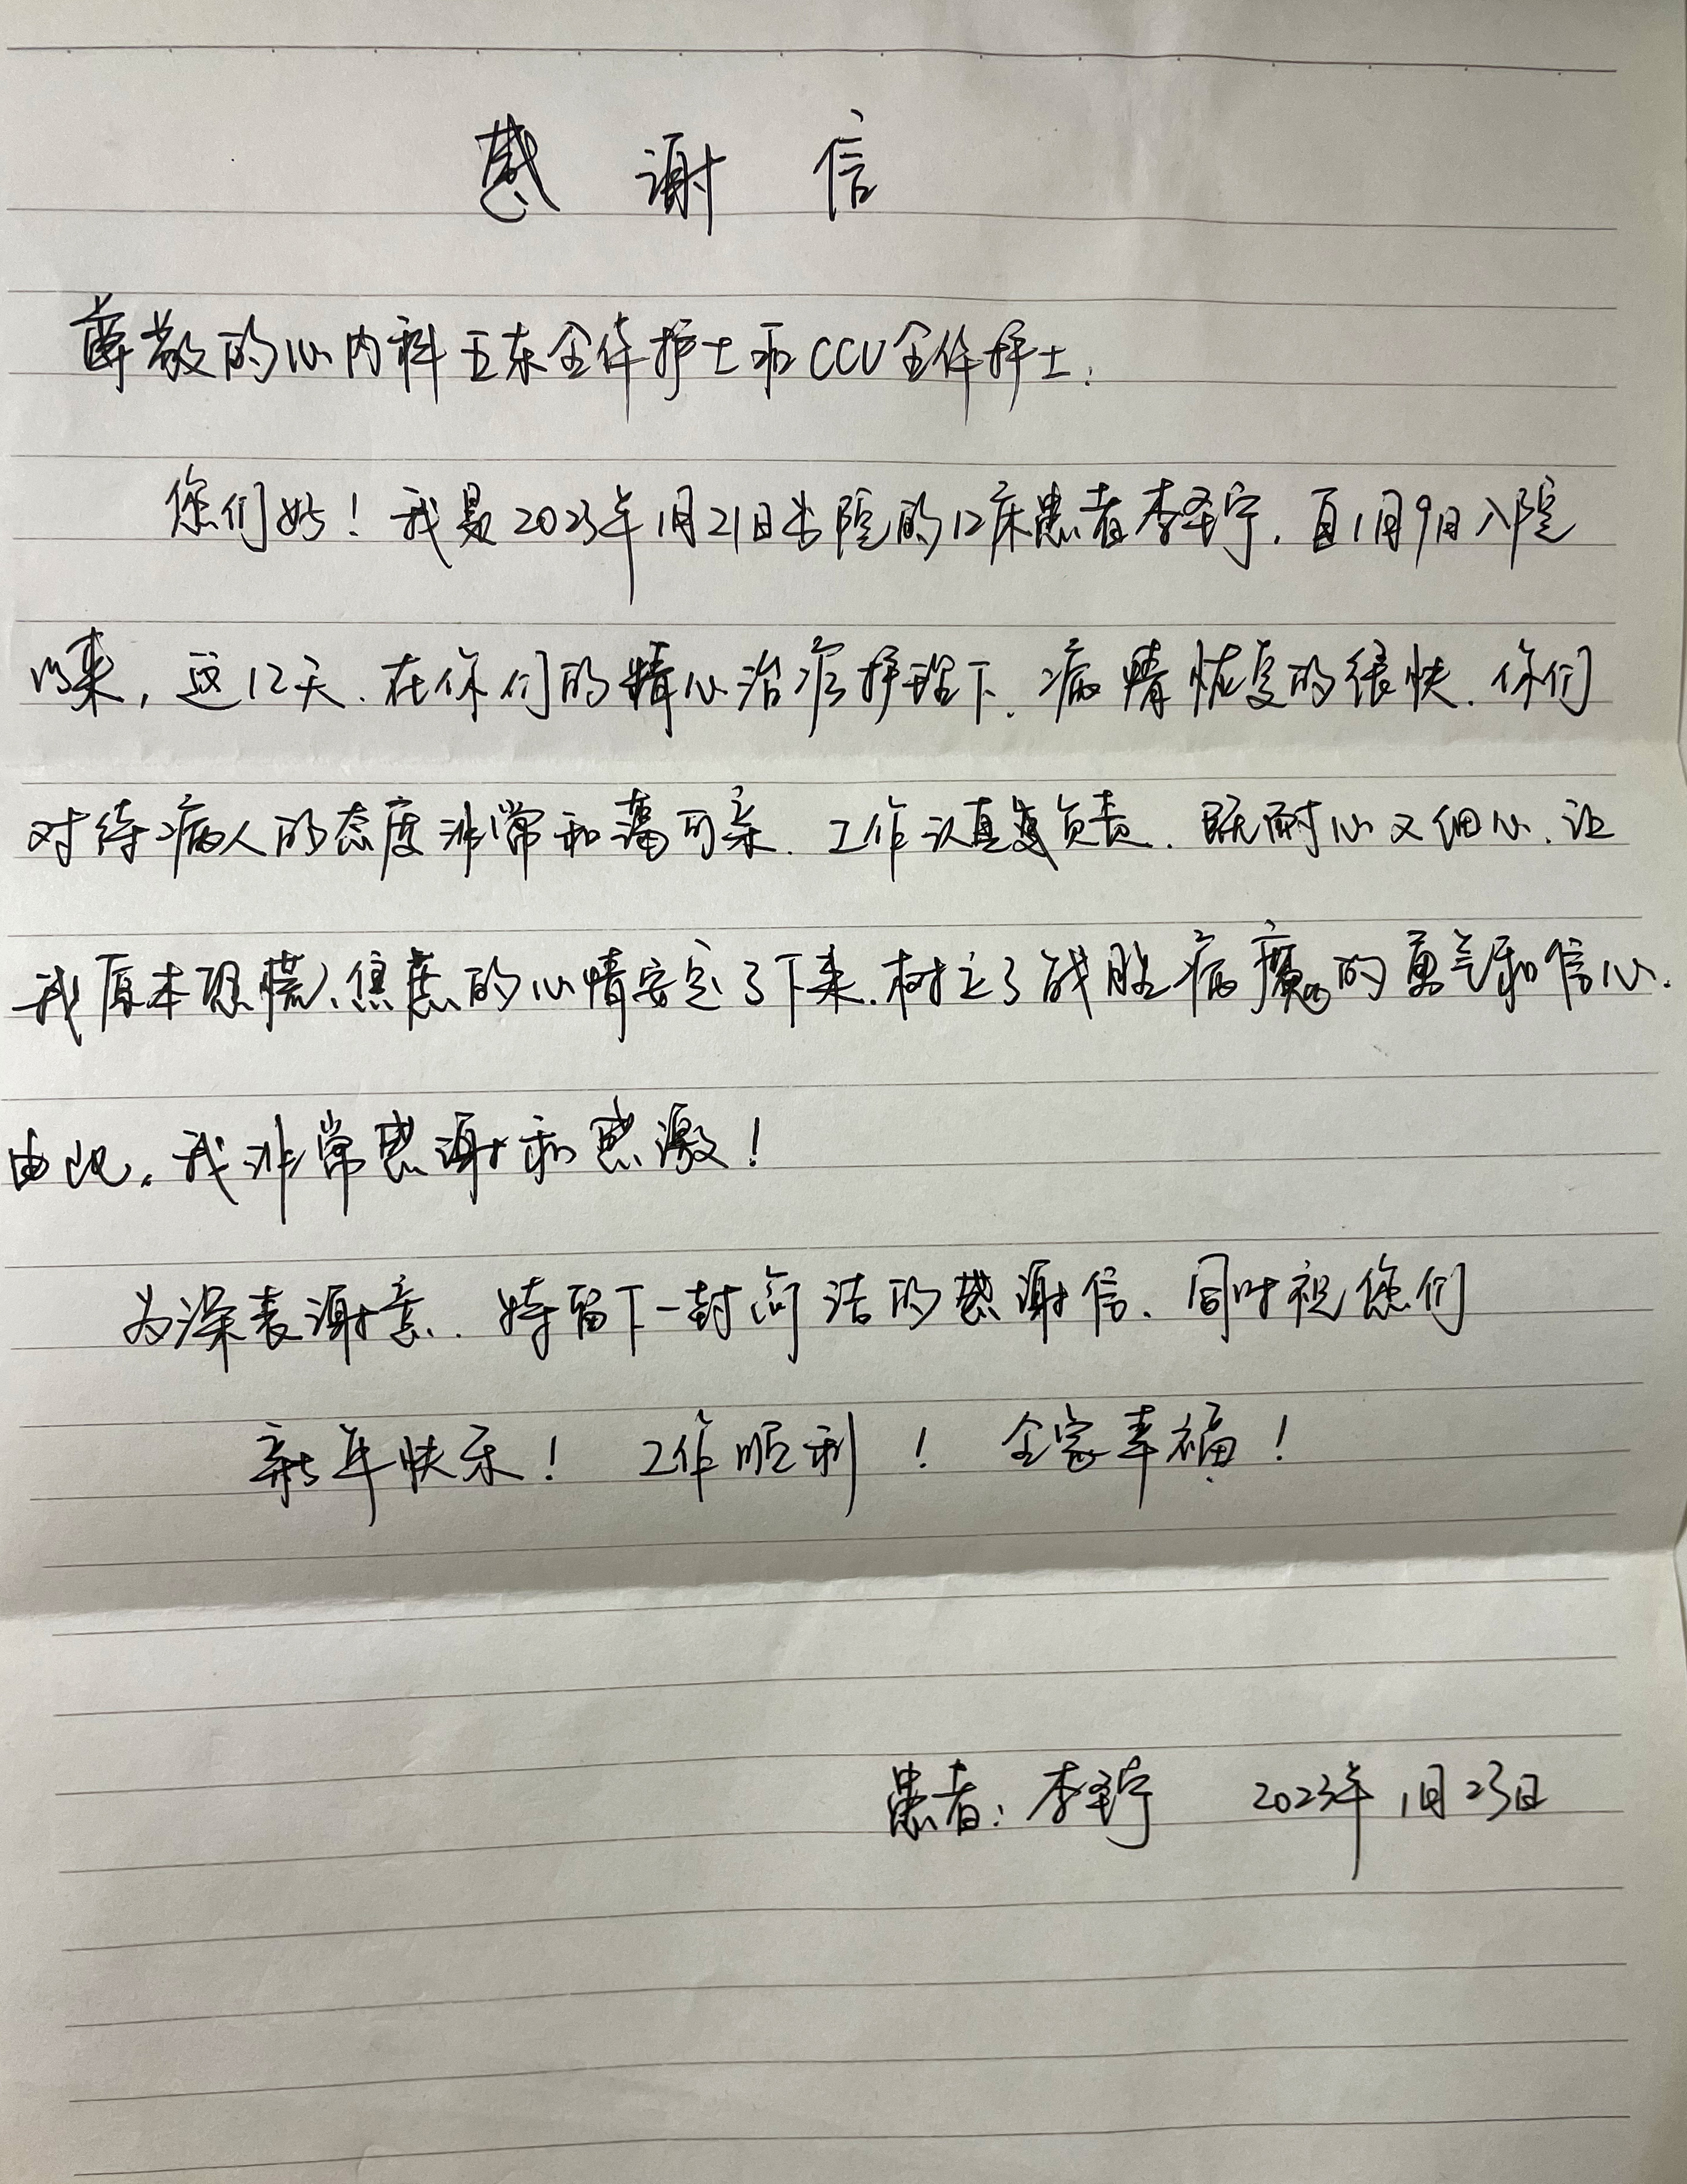 感谢信
尊敬的心内科五东全体护士和CCU全体护士:
您们好!我是2023年1月21日出院的12床患者李圣宁,自1月9日入院
以来,这12天,在你们的精心治疗护理下,病情恢复的很快,你们
对待病人的态度非常和蔼可亲,工作认真负责,既耐心又细心,让
我原本恐慌、焦虑的心情安定了下来,树立了战胜病魔的勇气和信心.
由此,我非常感谢和感激!
为深表谢意,特留下一封简洁的感谢信,同时祝您们
新年快乐! 工作顺利! 全家幸福!
患者:李圣宁 2023年1月23日